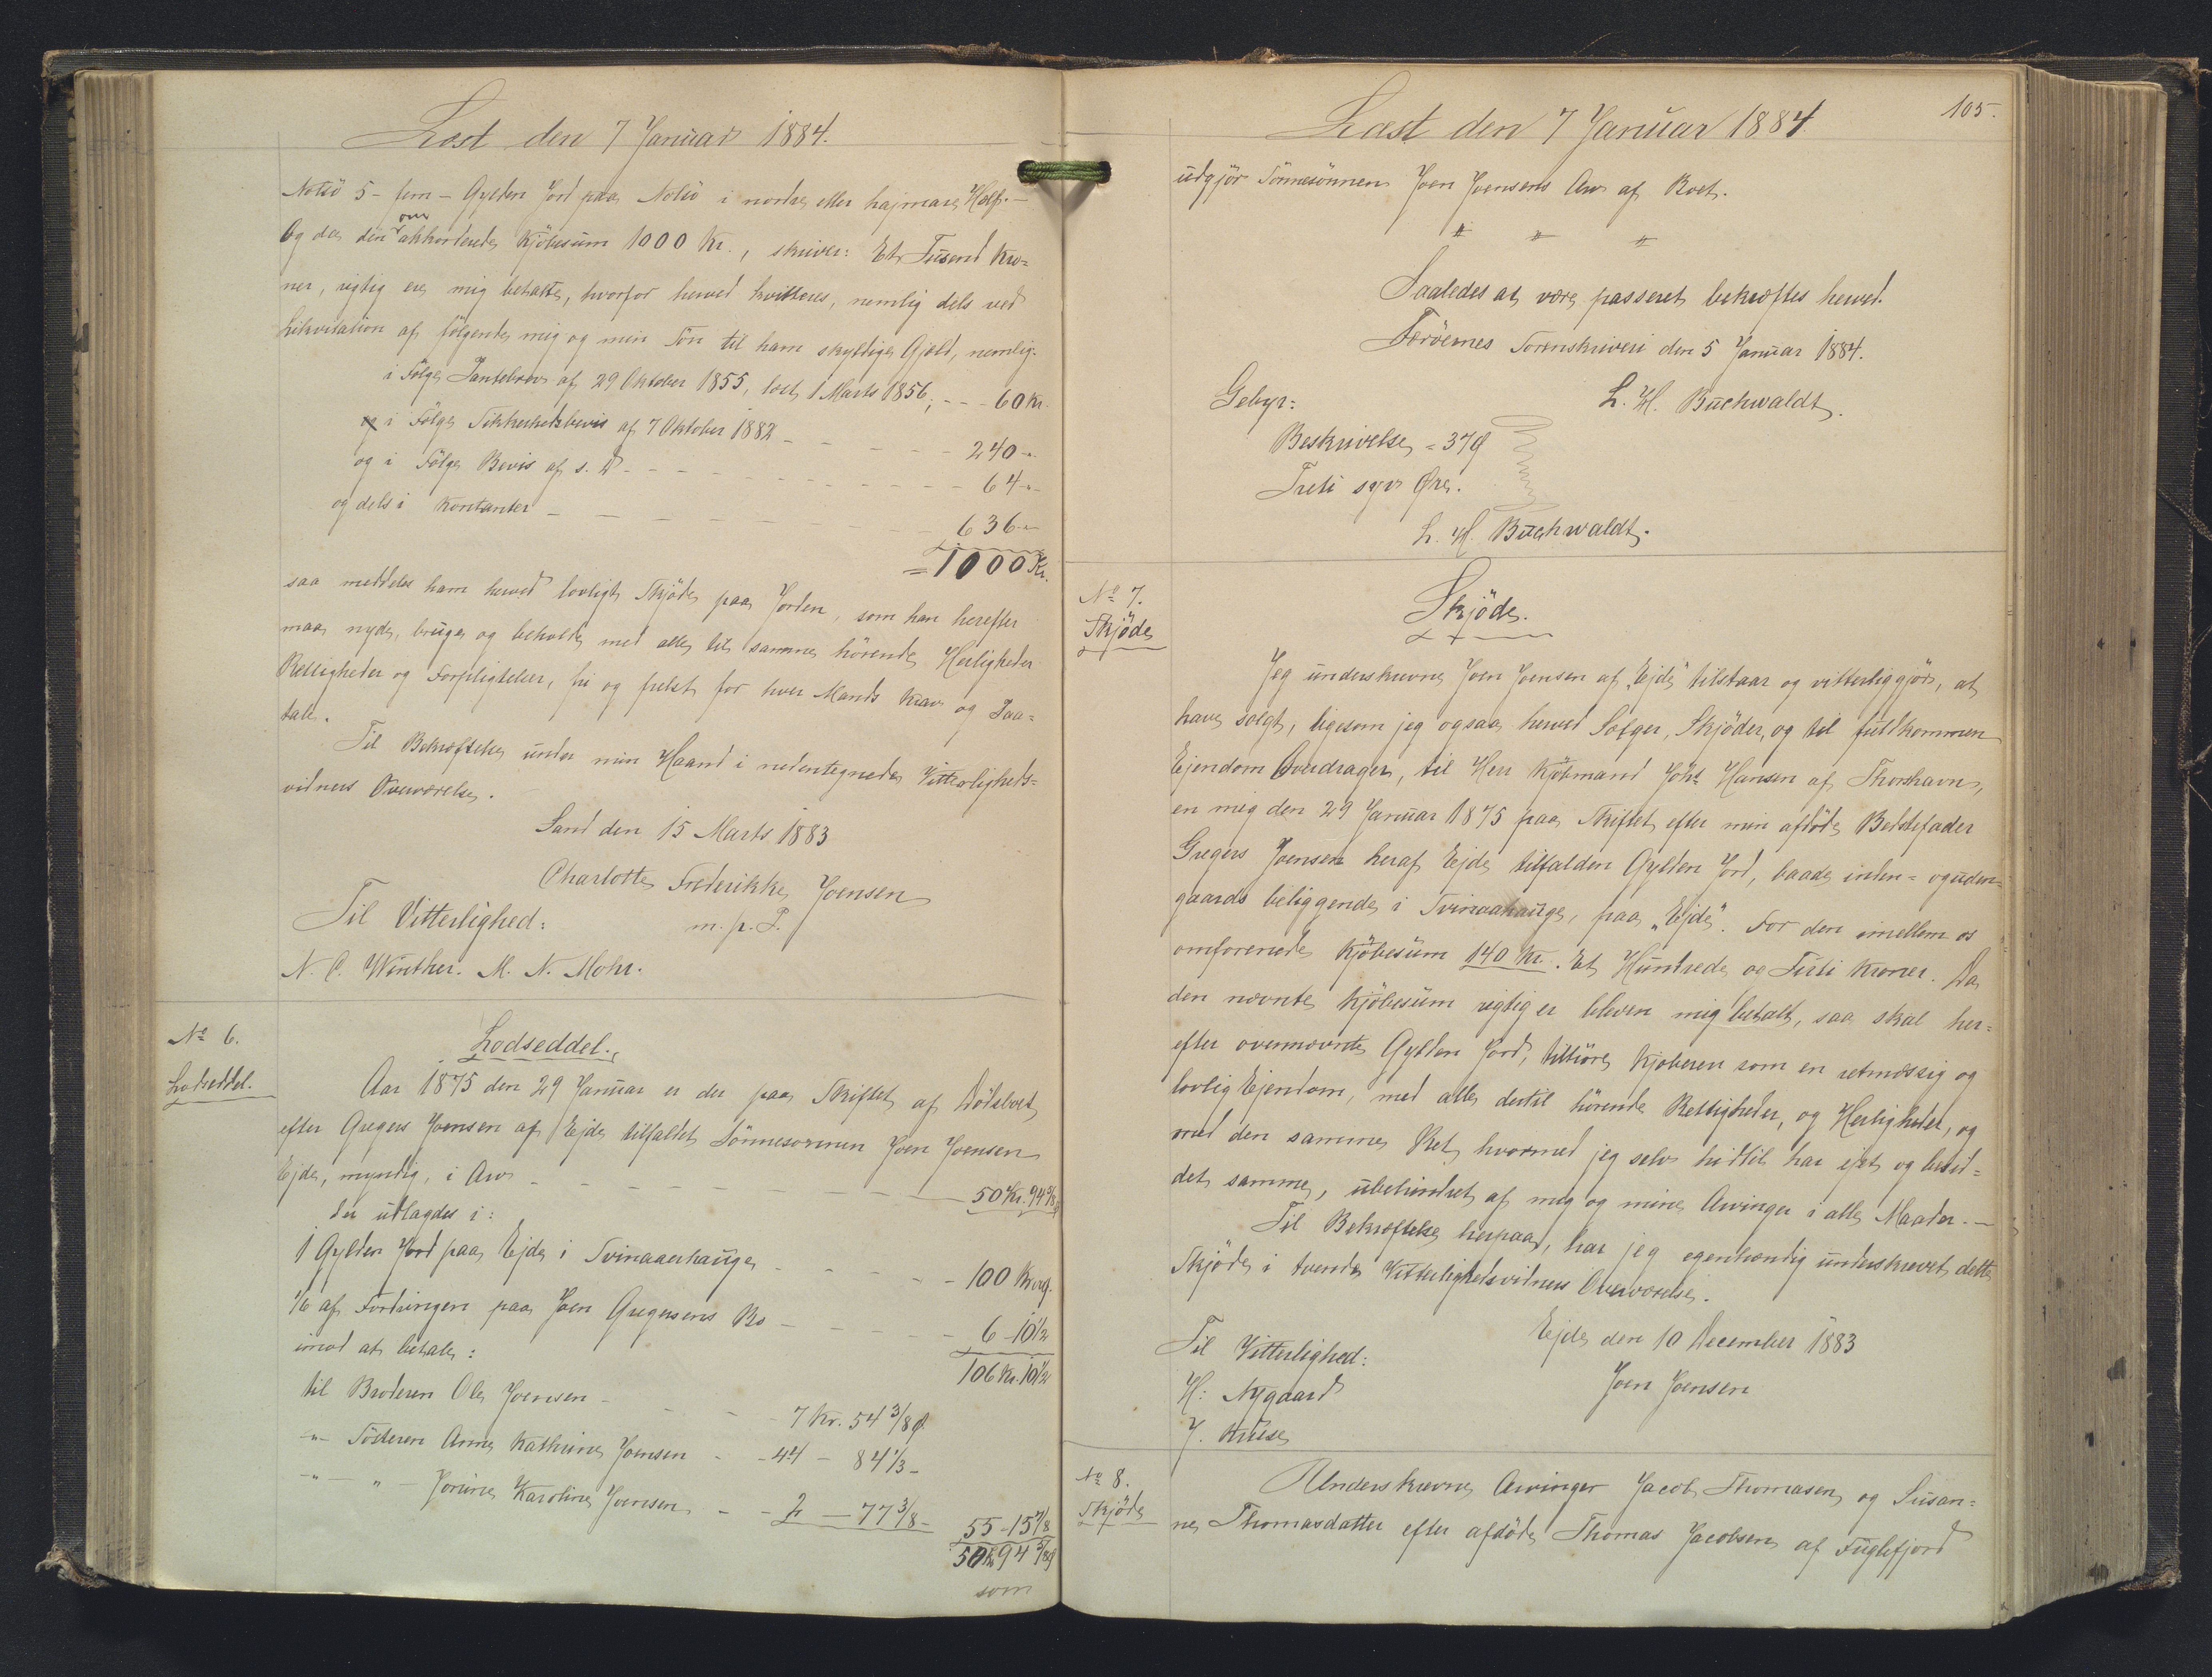 Læst den 7 Januar 1884.
Nolsö 5 - fem - Gylden Jord paa Nolsö i nordre eller hajmare Half. -
Og da den over
akkorderede Kjöbesum 1000 Kr., skriver: Et Tusend Kro=
ner, rigtig er mig betalt, hvorfor herved kvitteres, nemlig dels ved
Likvitation af følgende mig og min Sön til ham skyldige Gjæld, nemlig:
i Følge Pantebrev af 29 Oktober 1855, læst 1 Marts 1856, - - - 60 Kr.
og i Følge Sikkerhedsbevis af 7 Oktober 1882 - - - 240 -"-
og i Følge Bevis af s. D. - - - 64 -"-
og dels i Kontanter - - - 636 -"-
= 1000 Kr.
saa meddeles ham herved lovligt Skjöde paa Jorden, som han herefter
maa nyde, bruge og beholde med alle til samme hörende Herligheder
Rettigheder og Forpligtelser, fri og frelst for hver Mands Krav og Paa=
tale.
Til Bekræftelse under min Haand i nedentegnede Vitterligheds=
vidners Overværelse.
Sand den 15 Marts 1883
Charlotte Frederikke Joensen
m. p. P.
Til Vitterlighed:
N. C. Winther. M. N. Mohr.
No 6.
Lodseddel.
Lodseddel.
Aar 1875 den 29 Januar er der paa Skiftet af Dödsboet
efter Gregers Joensen af Ejde tilfaldet Sönnesönnen Joen Joensen
Ejde, myndig, i Arv - - - 50 Kr. 94 5/8 Ø
der udlagdes i:
1 Gylden Jord paa Ejde i Tvinaaerhauge - - - 100 Kr
1/6 af Fordringen paa Joen Gregersens Bo - - - 6 - 10 1/2
106 Kr. 10 1/2
imod at betale:
til Broderen Ole Joensen - - - 7 Kr. 54 3/8 Ø
-"- Søsteren Anna Kathrine Joensen - - 44 - 84 1/3 -
-"- " - Jorine Karoline Joensen - - 2 - 77 3/8 -
55 - 15 7/8
50 Kr 94 5/8 Ø
som
105.
Læst den 7 Januar 1884
udgjör Sönnesönnen Joen Joensens Arv af Boet.
" " "
Saaledes at være passeret bekræftes herved.
Færöernes Sorenskriveri den 5 Januar 1884.
L. H. Buchwaldt.
Gebyr:
Beskrivelse = 37 Ø
Treti syv Øre.
L. H. Buchwaldt.
No 7.
Skjöde
Skjöde.
Jeg underskrevne Joen Joensen af "Ejde" tilstaar og vitterliggjör, at
have solgt, ligesom jeg ogsaa herved Sælger, Skjöder, og til fuldkommen
Ejendom Overdrager, til Herr Kjöbmand Johs Hansen af Thorshavn,
en mig den 29 Januar 1875 paa Skiftet efter min afdöde Bedstefader
Gregers Joensen heraf Ejde tilfalden Gylden Jord, baade inden= og uden
gaards beliggende i Tvinaahauge, paa "Ejde". For den imellem os
omforenede Kjöbesum 140 Kr. Et Hundrede og Firti Kroner. Da
den nævnte Kjöbesum rigtig er bleven mig betalt, saa skal her=
efter ovennævnte Gylden Jord, tilhöre Kjøberen som en retmæssig og
lovlig Ejendom, med alle dertil hörende Rettigheder, og Herligheder, og
med den samme Ret, hvormed jeg selv hidtil har ejet og besid=
det samme, ubehindret af mig og mine Arvinger i alle Maader. -
Til Bekræftelse herpaa, har jeg egenhændig underskrevet dette
Skjöde i tvende Vitterlighedsvidners Overværelse.
Ejde den 10 December 1883
Joen Joensen
Til Vitterlighed:
H: Nygaard
J. Kruse
No 8.
Skjöde
Underskrevne Arvinger Jacob Thomasen og Susan=
ne Thomasdatter efter afdöde Thomas Jacobsen af Fuglefjord